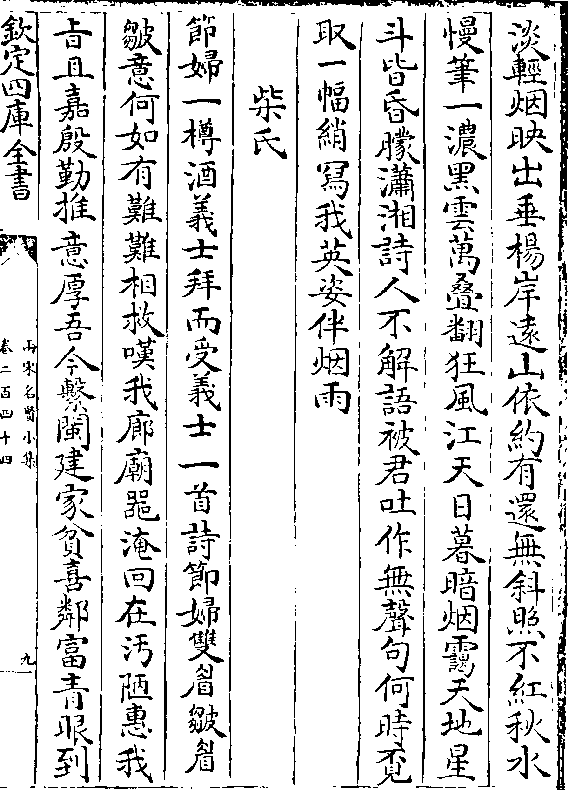 淡輕烟映出垂楊岸遠山依約有還無斜照不紅秋水
慢筆一濃黑雲萬叠翻狂風江天日暮暗烟靄天地星
斗皆昏朦瀟湘詩人不解語被君吐作無聲句何時覔
取一幅綃寫我英姿伴烟雨
柴氏
節婦一樽酒義士拜而受義士一首詩節婦雙眉皺眉
皺意何如有難難相救嘆我廊廟噐淹回在汚陋惠我
旨且嘉殷勤推意厚吾今繫閩建家貧喜鄰富青眼到
欽定四庫全書
兩宋名賢小集
卷二百四十四
九